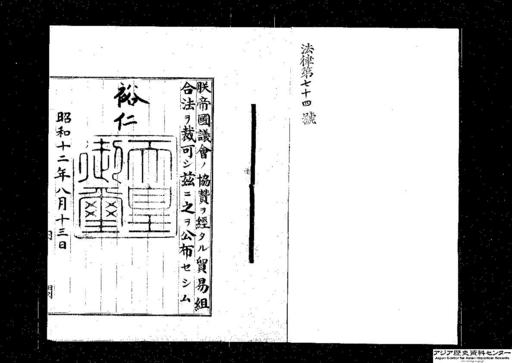 法律第七十四號
朕帝國議會ノ協賛ヲ經タル貿易組
合法ヲ裁可シ茲ニ之ヲ公布セシム
裕仁
天皇御璽
昭和十二年八月十三日
アジア歴史資料センター
Japan Center for Asian Historical Records